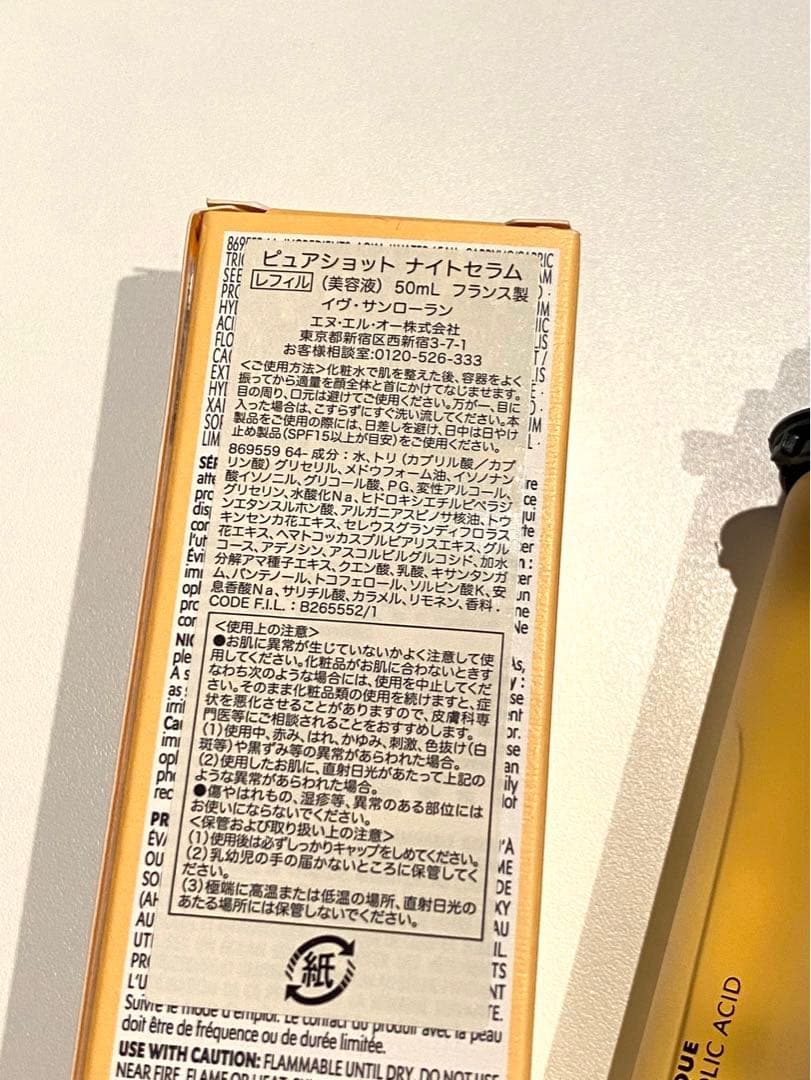 ピュアショット ナイトセラム
レフィル (美容液) 50mL フランス製
イヴ・サンローラン
エヌ・エル・オー株式会社
東京都新宿区西新宿3-7-1
お客様相談室:0120-526-333
<ご使用方法>化粧水で肌を整えた後、容器をよく
振ってから適量を顔全体と首にかけてなじませます。
目の周り、口元は避けてご使用ください。万が一、目に
入った場合は、こすらずにすぐ洗い流してください。本
製品をご使用の際には、日差しを避け、日中は日やけ
止め製品(SPF15以上が目安)をご使用ください。
869559 64- 成分：水、トリ(カプリル酸/カプ
リン酸)グリセリル、メドウフォーム油、イソノナン
酸イソノニル、グリコール酸、PG、変性アルコール、
グリセリン、水酸化Na、ヒドロキシエチルピペラジ
ンエタンスルホン酸、アルガニアスピノサ核油、トウ
キンセンカ花エキス、セレウスグランディフロラス
花エキス、ヘマトコッカスプルビアリスエキス、グル
コース、アデノシン、アスコルビルグルコシド、加水
分解アマ種子エキス、クエン酸、乳酸、キサンタンガ
ム、パンテノール、トコフェロール、ソルビン酸K、安
息香酸Na、サリチル酸、カラメル、リモネン、香料．
CODE F.I.L.：B265552/1
<使用上の注意>
●お肌に異常が生じていないかよく注意して使
用してください。化粧品がお肌に合わないときす
なわち次のような場合には、使用を中止してくだ
さい。そのまま化粧品類の使用を続けますと、症
状を悪化させることがありますので、皮膚科専
門医等にご相談されることをおすすめします。
(1)使用中、赤み、はれ、かゆみ、刺激、色抜け(白
斑等)や黒ずみ等の異常があらわれた場合。
(2)使用したお肌に、直射日光があたって上記の
ような異常があらわれた場合。
●傷やはれもの、湿疹等、異常のある部位には
お使いにならないでください。
<保管および取り扱い上の注意>
(1)使用後は必ずしっかりキャップをしめてください。
(2)乳幼児の手の届かないところに保管してく
ださい。
(3)極端に高温または低温の場所、直射日光の
あたる場所には保管しないでください。
紙
Suivre le mode d'emploi. Le contact du produit avec la peau
doit être de fréquence ou de durée limitée.
USE WITH CAUTION: FLAMMABLE UNTIL DRY. DO NOT USE
NEAR FIRE, FLAME OR HEAT.
LIC ACID